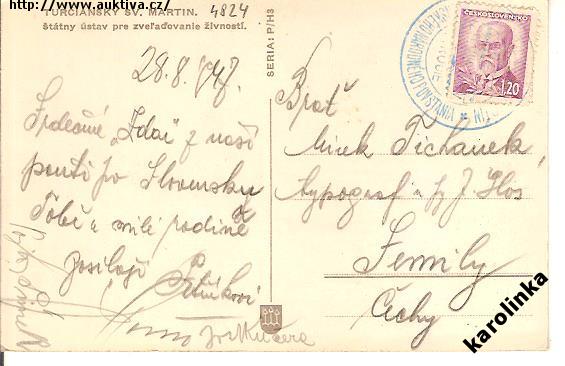 http://www.auktiva.cz/
TURČIANSKÝ SV. MARTIN. 4824
Štátny ústav pre zveľaďovanie živností.
SERIA: P/H3
28.8.1947
Srdečné „Zdar" z naší
pouti po Slovensku
Tobě a milé rodině
zasílají
Jos. Kučera
ČESKOSLOVENSKO
1,20
Bratr
Mirek Tichánek,
typograf
Semily
Čechy
karolinka